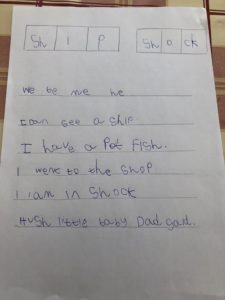 Sh i p
Sh o ck
we be me he
I can see a ship.
I have a Pet Fish.
I went to the shop
I am in Shock
Hush little baby Dad